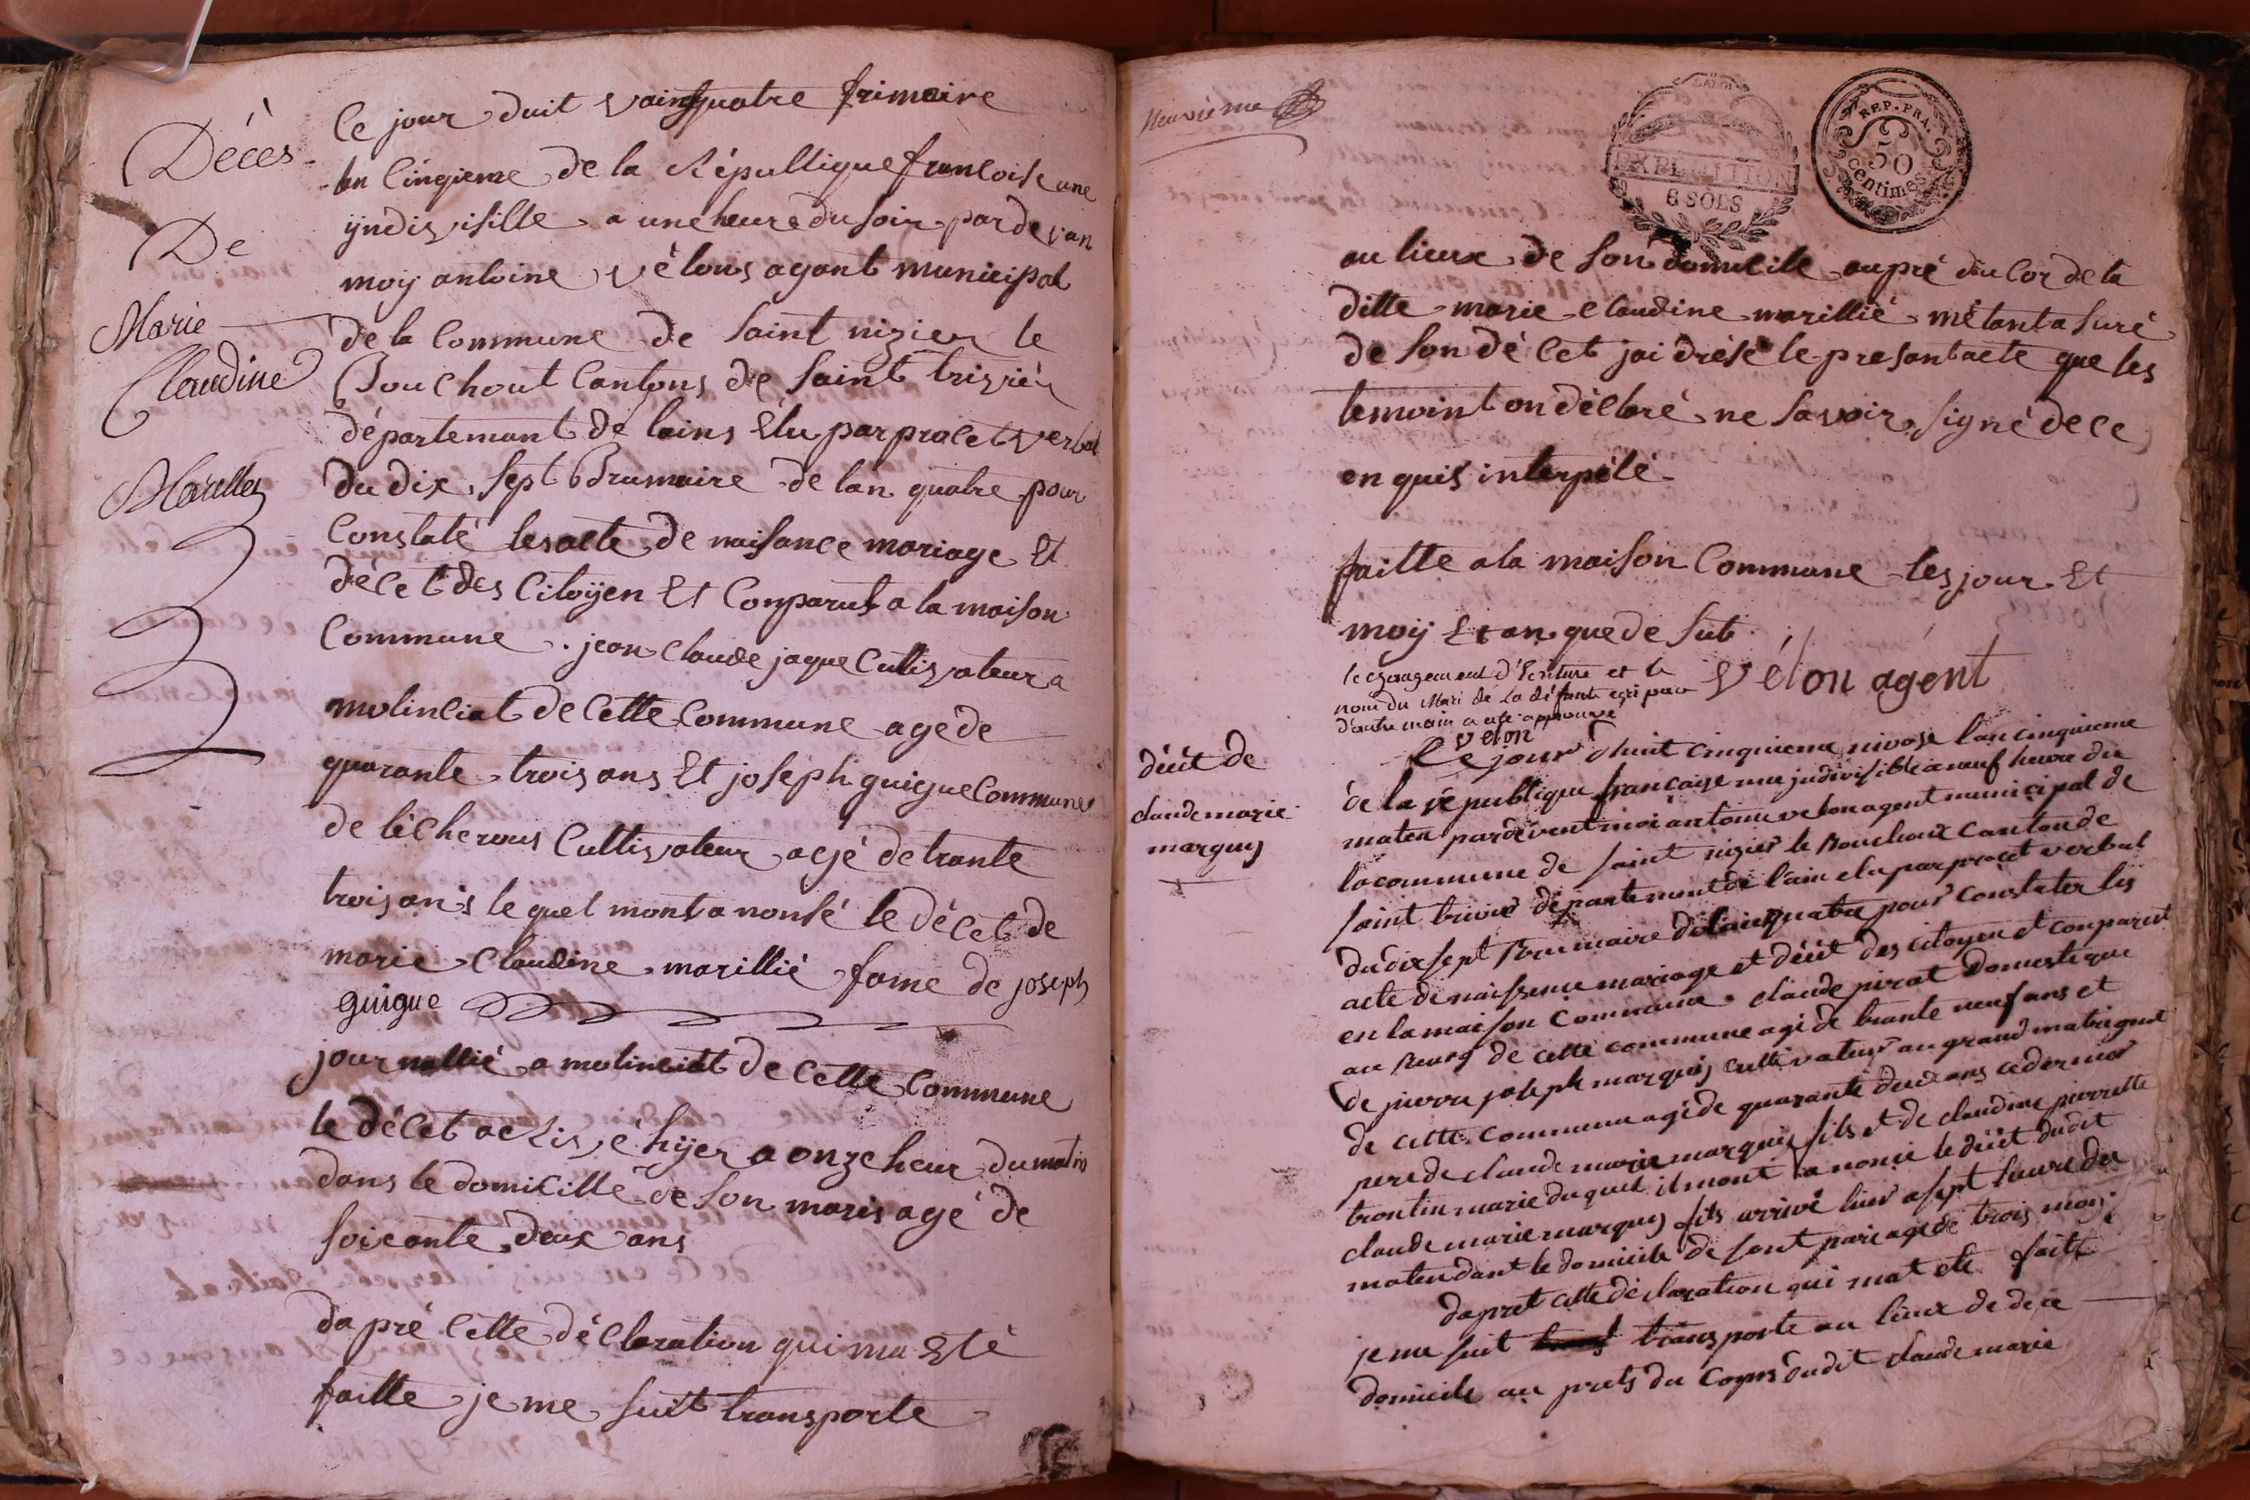 Décès
De
Marie
Claudine
Marillier
Ce jour duit vaingquatre frimaire
lan Cinqieme de la Républlique francoise une
ÿndivisille a une heure du soir par devan
moy antoine vélons agant municipal
de la Commune de Saint nizier le
Bouchout Cantons de Saint trivier
départemant de lains Elu par procet verbal
du dix sept Brumaire de lan quatre pour
Constaté les acte de naisance mariage Et
décet des Citoÿen Et Conparut a la maison
Commune . jean Claude jaque Cultivateur a
molinciat de Cette Commune agé de
quarante trois ans Et joseph guigue Commune
de lécherous Cultivateur agé de trante
trois ans le quel mont a nonsé le décet de
marie Claudine marillié fame de joseph
guigue
journallié a molinciat de Cette Commune
le décet a élivé hÿer a onze heur du matin
dans le domicille de son maris agé de
soixante deux ans
dapré Cette déclaration qui ma Eté
faitte je me suit transporté
neuvieme
EXPEDITION
8 SOLS
REP. FRA.
50
Centimes
au lieux de son domicile aupré du Cor de la
ditte marie Claudine marillié métant asuré
de son décet jai drésé le presant acte que les
temoint on décloré ne savoir signé de ce
en quis interpélé
faitte a la maison Commune les jour Et
moÿ Et an que de sut
le changement d'Ecriture et le
nom du Mari de la défunte
d'autre main a été approuvé
vélon
Vélon agént
décit de
claude marie
marquis
Ce jour d'huit cinquieme nivose l'an cinquieme
de la république française une indivisible a neuf heure du
maten pardevent moi antoine velon agent municipal de
la commune de saint nizier le Bouchoux canton de
saint trivier département de l'ain elu par procet verbal
du dix sept Brumaire de lan quatre pour constater les
acte de naissence mariage et décit des citoyen et conparut
en la maison commune claude pirat domestique
au Bourg de cette commune agé de trante neuf ans et
de pierre joseph marquis cultivateur au grand matrignat
de cette commune agé de quarante deux ans ce dernier
pere de claude marie marquis fils et de claudine pierrette
trontin marie duquel il mont a noncé le décit dudit
claude marie marquis fils arrivé hier a sept heure du
maten dant le domicile de sont pair agé de trois mois
dapret cette déclaration qui mat eté faitte
je me suit transporté au lieux de de ce
domicile au prets du corps dudit claude marie